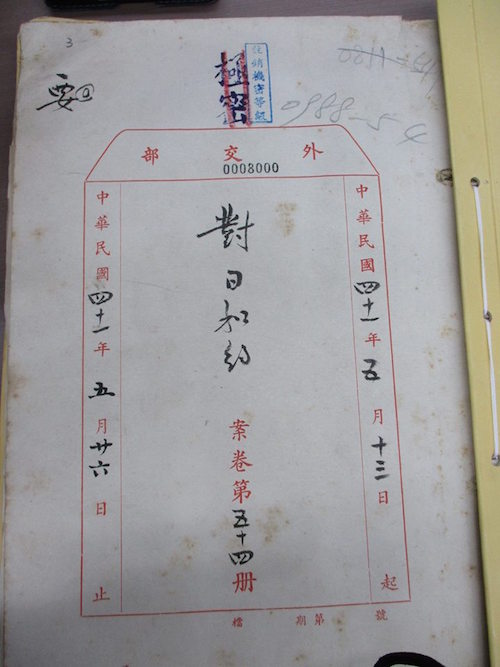 3
要
極密
註銷機密等級
0988-54
外交部
0008000
中華民國四十一年五月十三日起
對日和約
案卷第五十四册
中華民國四十一年五月廿六日止
號第期檔